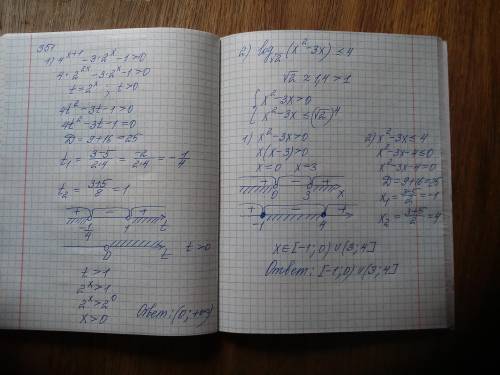 351
1) 4^{x+1} -3·2^x -1>0
4·2^{2x} -3·2^x -1>0
t=2^x ; t>0
4t²-3t-1>0
4t²-3t-1=0
D=9+16=25
t₁ = (3-5)/(2·4) = -2/(2·4) = -1/4
t₂ = (3+5)/8 = 1
+ - +
-1/4 1 t
0 t>0
t>1
2^x>1
2^x>2^0
x>0
Ответ: (0; +∞)
2) log_{√2}(x²-3x) ≤ 4
√2 ≈ 1,4 > 1
{ x²-3x>0
x²-3x ≤ (√2)^4
1) x²-3x>0
x(x-3)>0
x=0 x=3
+ - +
0 3 x
+ - +
-1 4
2) x²-3x ≤ 4
x²-3x-4≤0
x²-3x-4=0
D=9+16=25
x₁ = (3-5)/2 = -1
x₂ = (3+5)/2 = 4
x∈[-1; 0) ∪ (3; 4]
Ответ: [-1; 0) ∪ (3; 4]